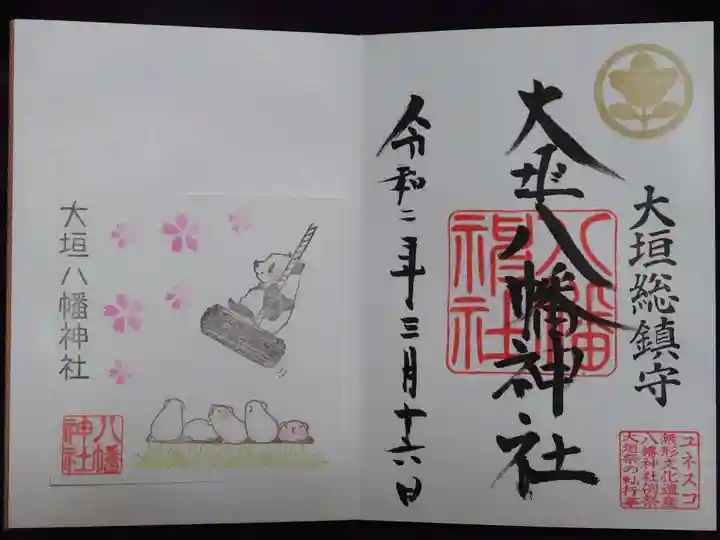 大垣総鎮守
大垣八幡神社
八幡
神社
令和二年三月十六日
ユネスコ
無形文化遺産
八幡神社例祭
大垣祭の𨊂行事
大垣八幡神社
八幡
神社